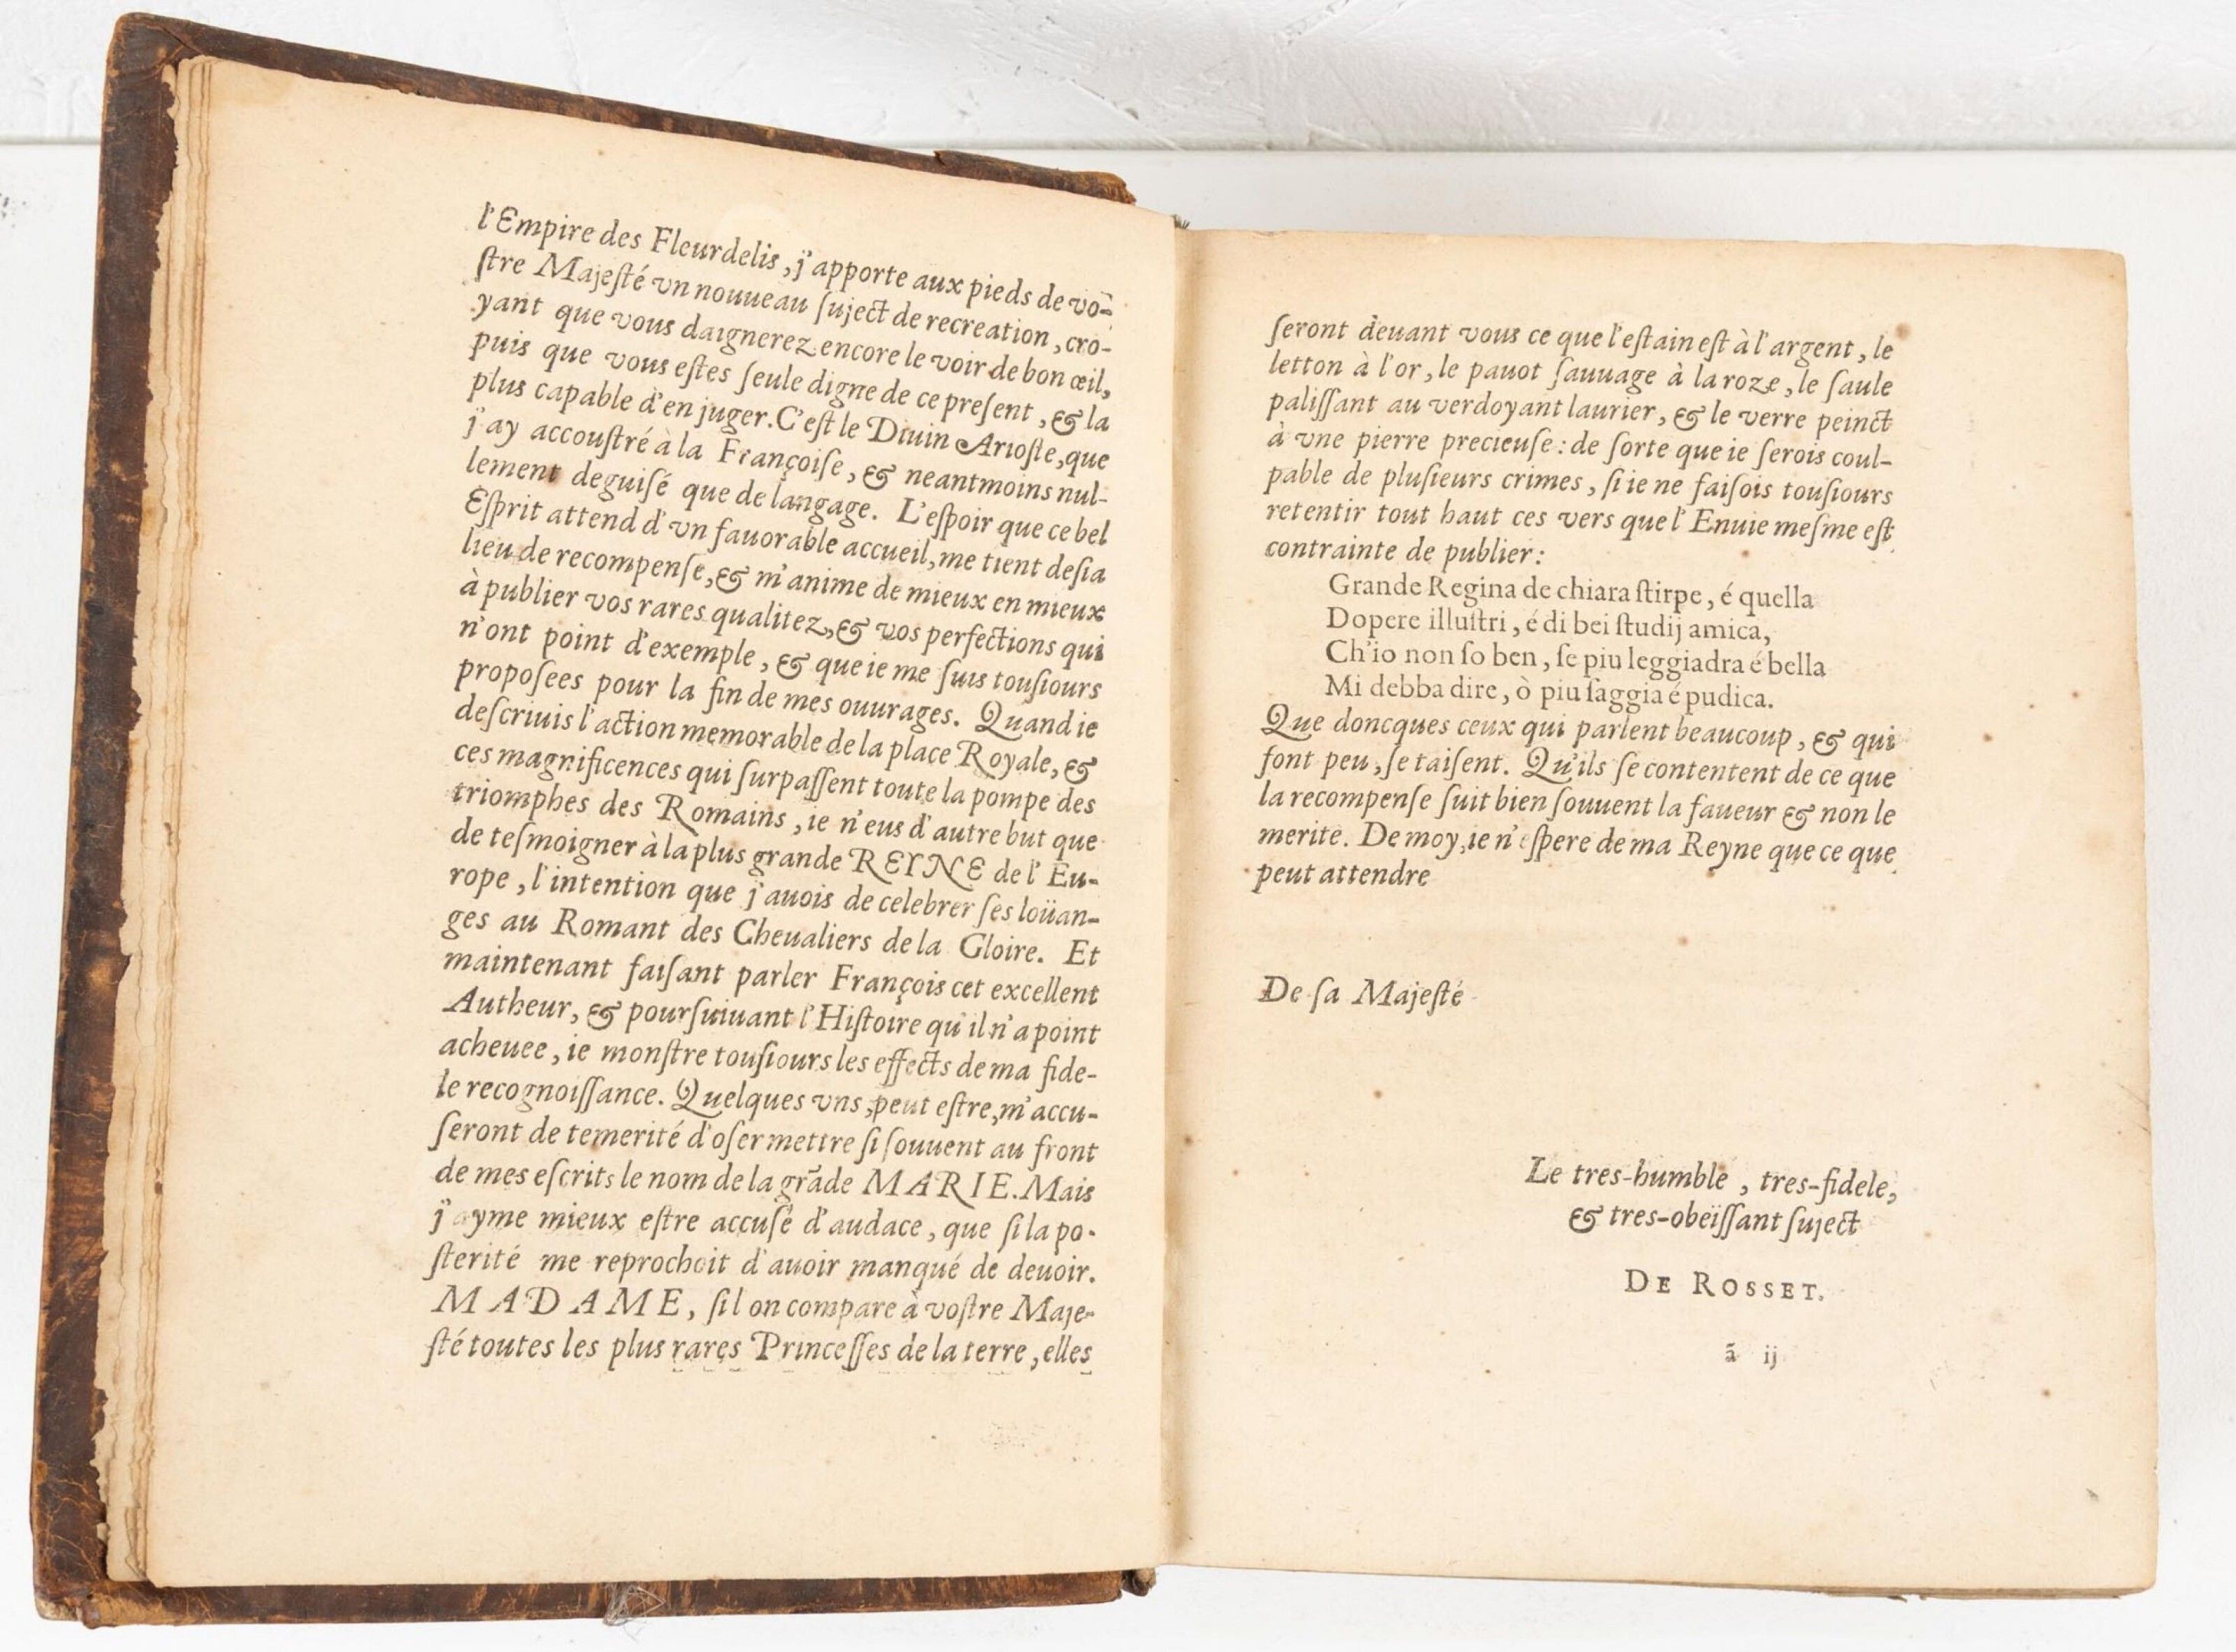 l'Empire des Fleurdelis, j'apporte aux pieds de vo-
ſtre Majeſté vn nouueau ſuject de recreation, cro-
yant que vous daignerez encore le voir de bon œil,
puis que vous eſtes ſeule digne de ce preſent, & la
plus capable d'en juger. C'eſt le Diuin Arioſte, que
j'ay accouſtré à la Françoiſe, & neantmoins nul-
lement deguiſé que de langage. L'eſpoir que ce bel
Eſprit attend d'vn fauorable accueil, me tient deſia
lieu de recompenſe, & m'anime de mieux en mieux
à publier vos rares qualitez, & vos perfections qui
n'ont point d'exemple, & que ie me ſuis touſiours
propoſees pour la fin de mes ouurages. Quand ie
deſcriuis l'action memorable de la place Royale, &
ces magnificences qui ſurpaſſent toute la pompe des
triomphes des Romains, ie n'eus d'autre but que
de teſmoigner à la plus grande REINE de l'Eu-
rope, l'intention que j'auois de celebrer ſes loüan-
ges au Romant des Cheualiers de la Gloire. Et
maintenant faiſant parler François cet excellent
Autheur, & pourſuiuant l'Hiſtoire qu'il n'a point
acheuee, ie monſtre touſiours les effects de ma fide-
le recognoiſſance. Quelques vns, peut eſtre, m'accu-
ſeront de temerité d'oſer mettre ſi ſouuent au front
de mes eſcrits le nom de la grãde MARIE. Mais
j'ayme mieux eſtre accuſé d'audace, que ſi la po-
ſterité me reprochoit d'auoir manqué de deuoir.
MADAME, ſil on compare à voſtre Maje-
ſté toutes les plus rares Princeſſes de la terre, elles
ſeront deuant vous ce que l'eſtain eſt à l'argent, le
letton à l'or, le pauot ſauuage à la roze, le ſaule
paliſſant au verdoyant laurier, & le verre peinct
à vne pierre precieuſe: de ſorte que ie ſerois coul-
pable de pluſieurs crimes, ſi ie ne faiſois touſiours
retentir tout haut ces vers que l'Enuie meſme eſt
contrainte de publier:
Grande Regina de chiara ſtirpe, é quella
Dopere illuſtri, é di bei ſtudij amica,
Ch'io non ſo ben, ſe piu leggiadra é bella
Mi debba dire, ò piu ſaggia é pudica.
Que doncques ceux qui parlent beaucoup, & qui
font peu, ſe taiſent. Qu'ils ſe contentent de ce que
la recompenſe ſuit bien ſouuent la faueur & non le
merite. De moy, ie n'eſpere de ma Reyne que ce que
peut attendre
De ſa Majeſté
Le tres-humble, tres-fidele,
& tres-obeïſſant ſuject
DE ROSSET.
ã ij